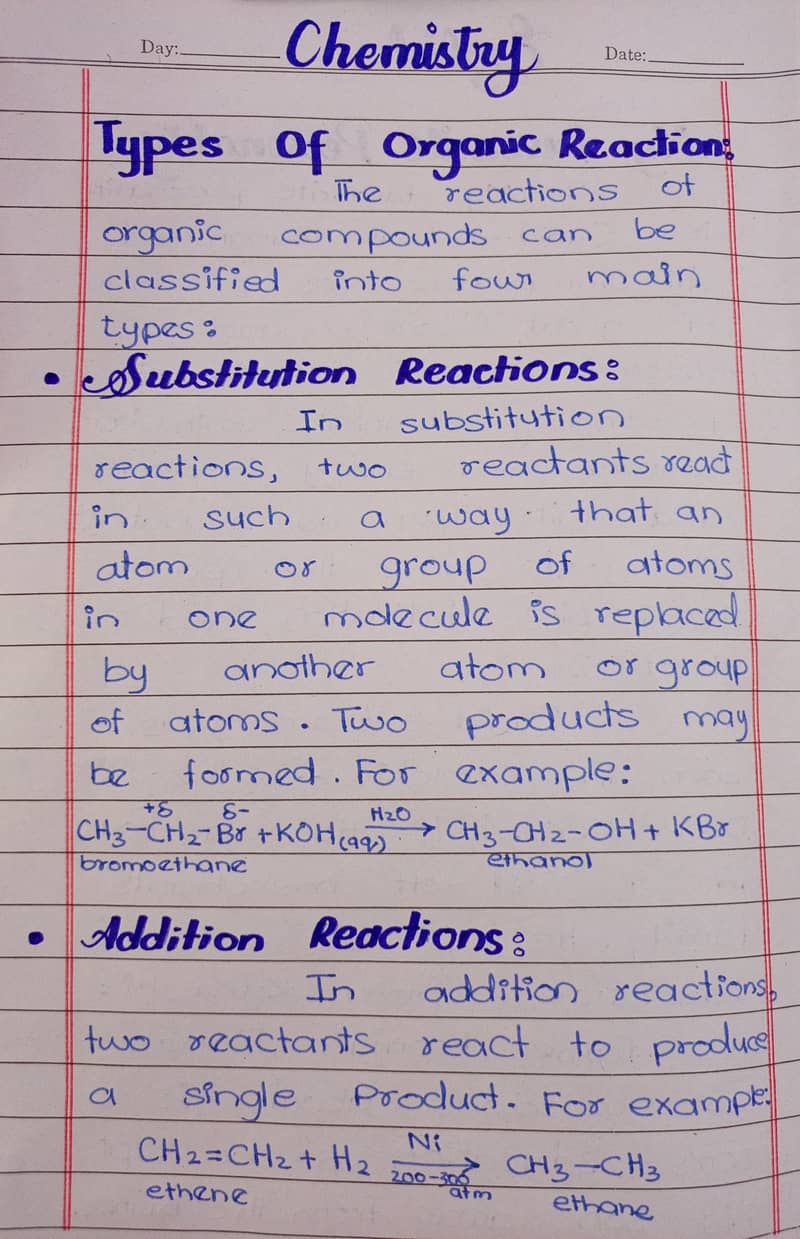 Day: Chemistry Date:
Types Of Organic Reaction:
The reactions of
organic compounds can be
classified into four main
types:
• Substitution Reactions:
In substitution
reactions, two reactants react
in such a way that an
atom or group of atoms
in one molecule is replaced
by another atom or group
of atoms. Two products may
be formed. For example:
+δ δ- H2O
CH3-CH2-Br + KOH(aq) → CH3-CH2-OH + KBr
bromoethane ethanol
• Addition Reactions:
In addition reactions,
two reactants react to produce
a single Product. For example:
Ni
CH2=CH2 + H2 → CH3-CH3
200-300
ethene atm ethane